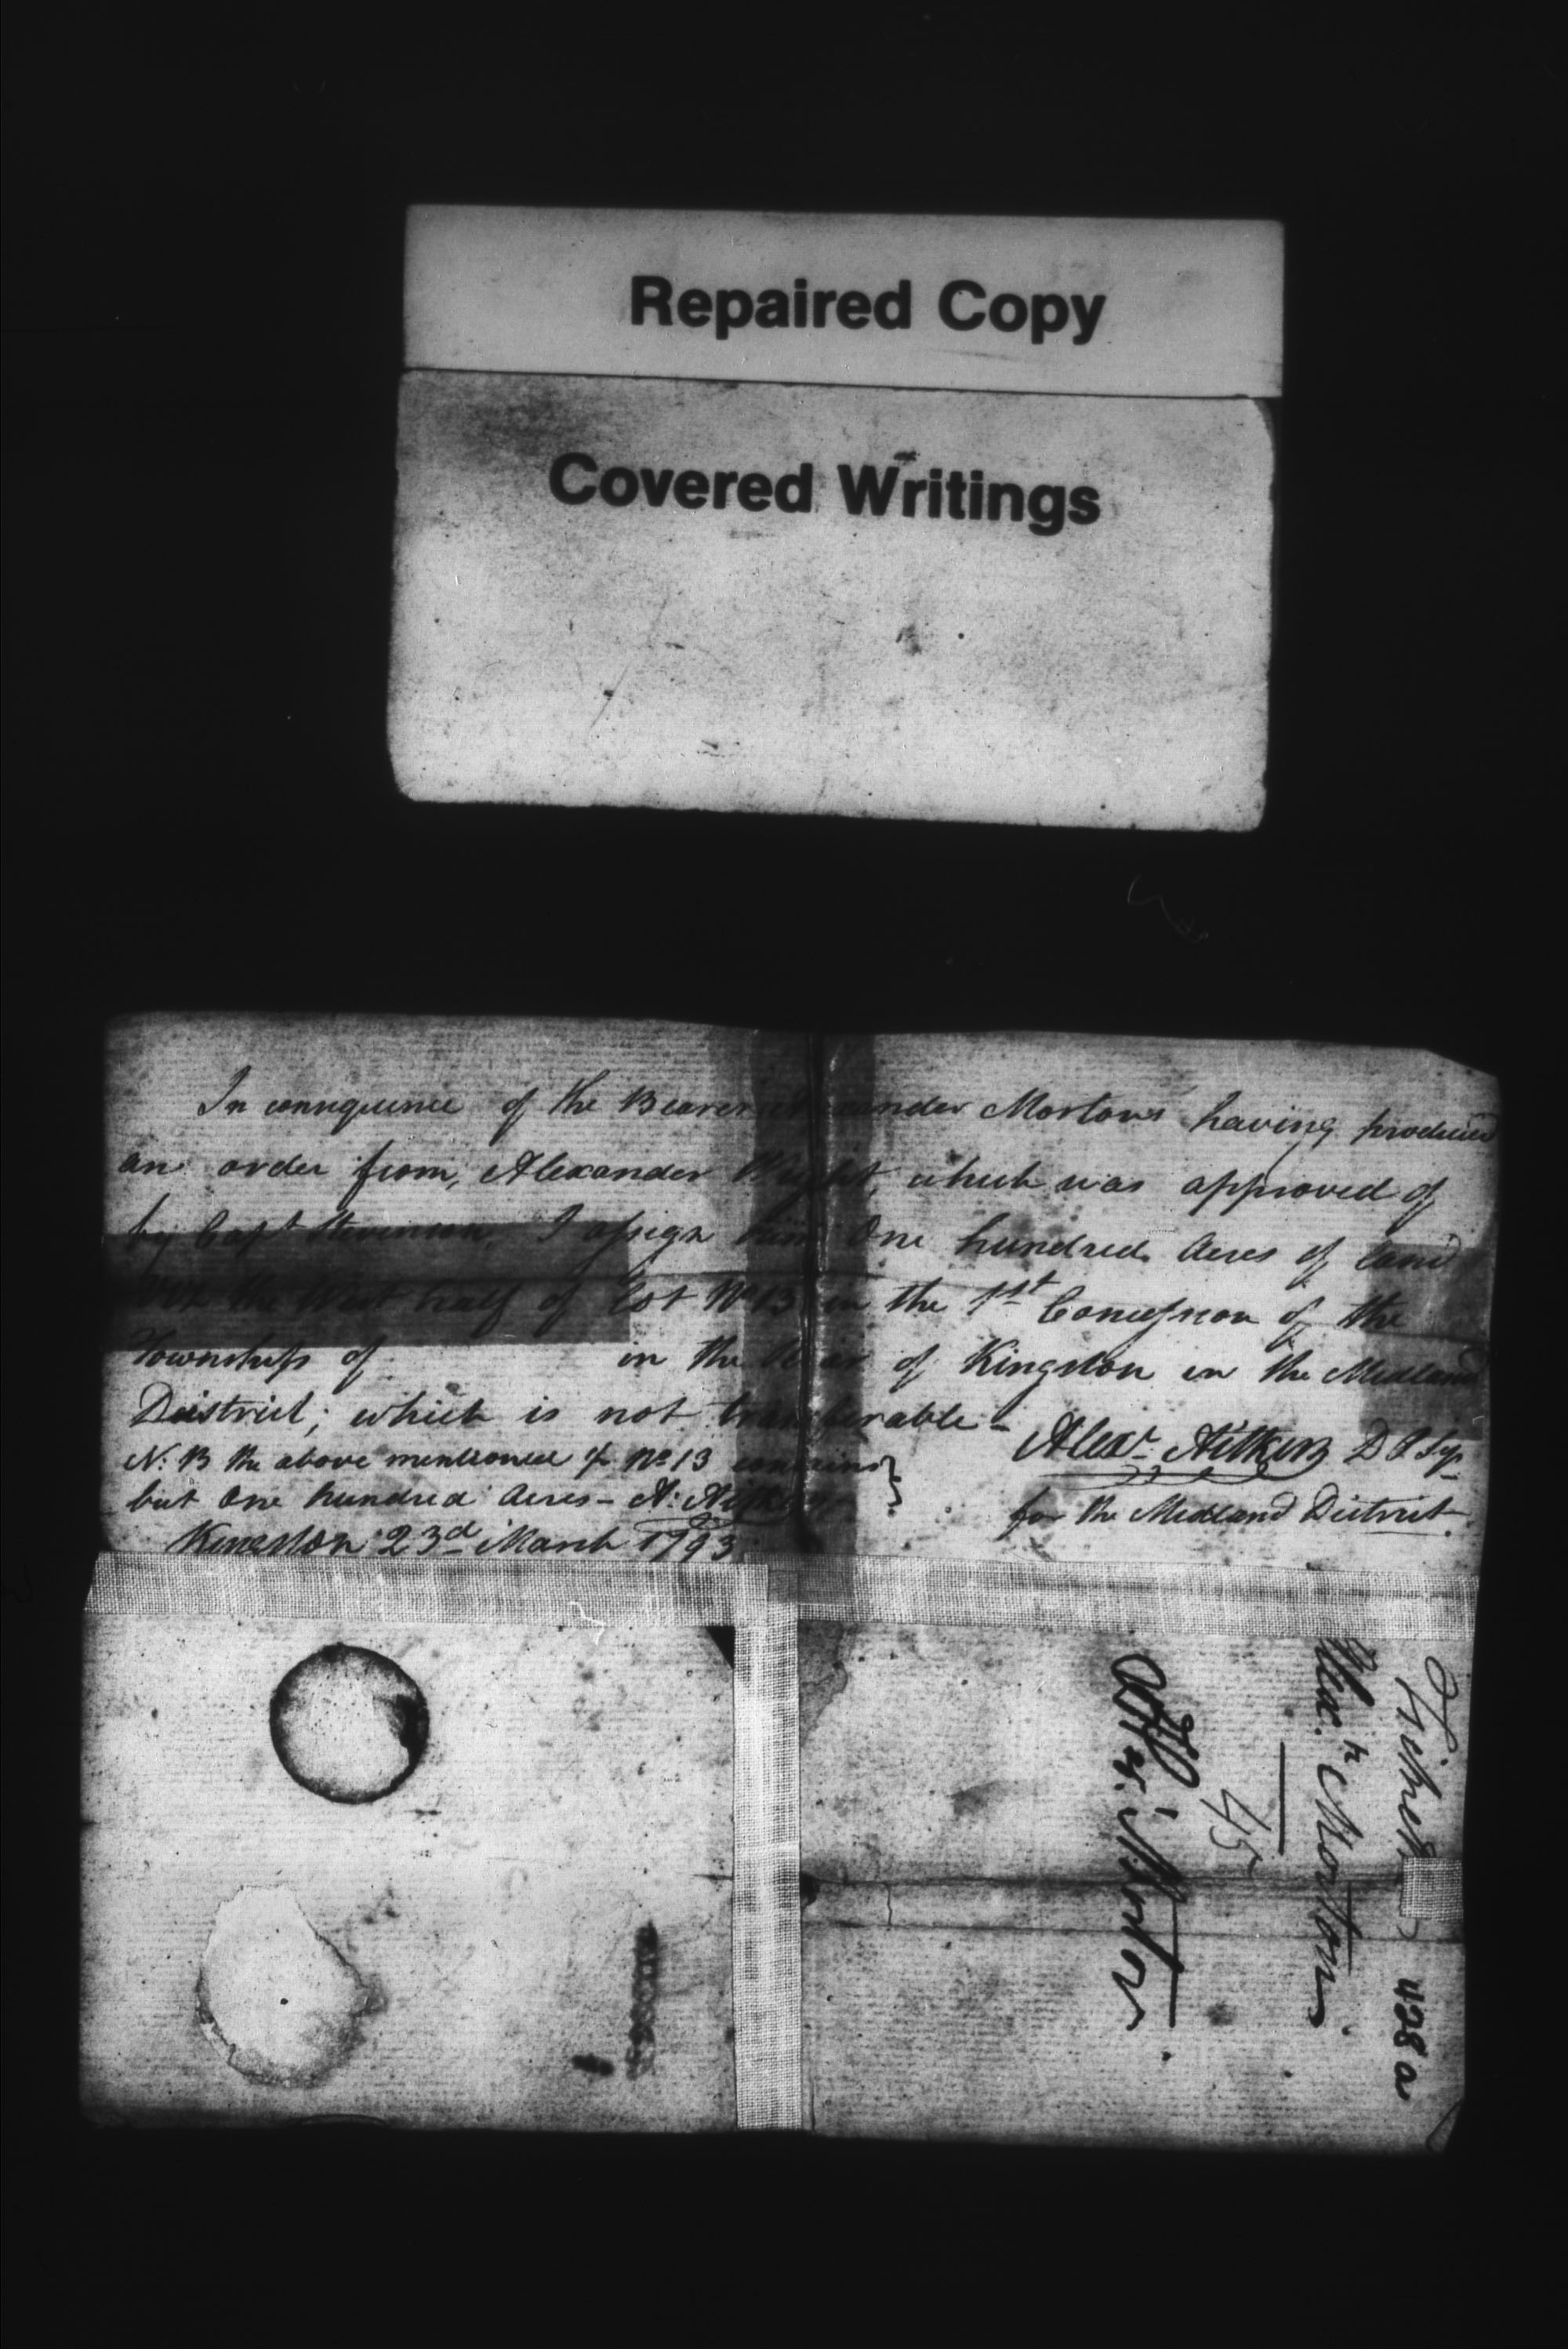 Repaired Copy
Covered Writings
In consequence of the Bearer Alexander Mortons having produced
an order from, Alexander Wright, which was approved of
by Capt Stevenson, I assign him One hundred Acres of land
Viz the West half of Lot No 13 in the 1st Concession of the
Township of in the Rear of Kingston in the Midland
District; which is not transferable -
Alexr. Aitkin D P Sr
for the Midland District.
N: B the above mentioned No 13 contains
but One hundred Acres - A: Aitkin
Kingston 23d March 1793
Ticket
428a
Alexr. Morton
45